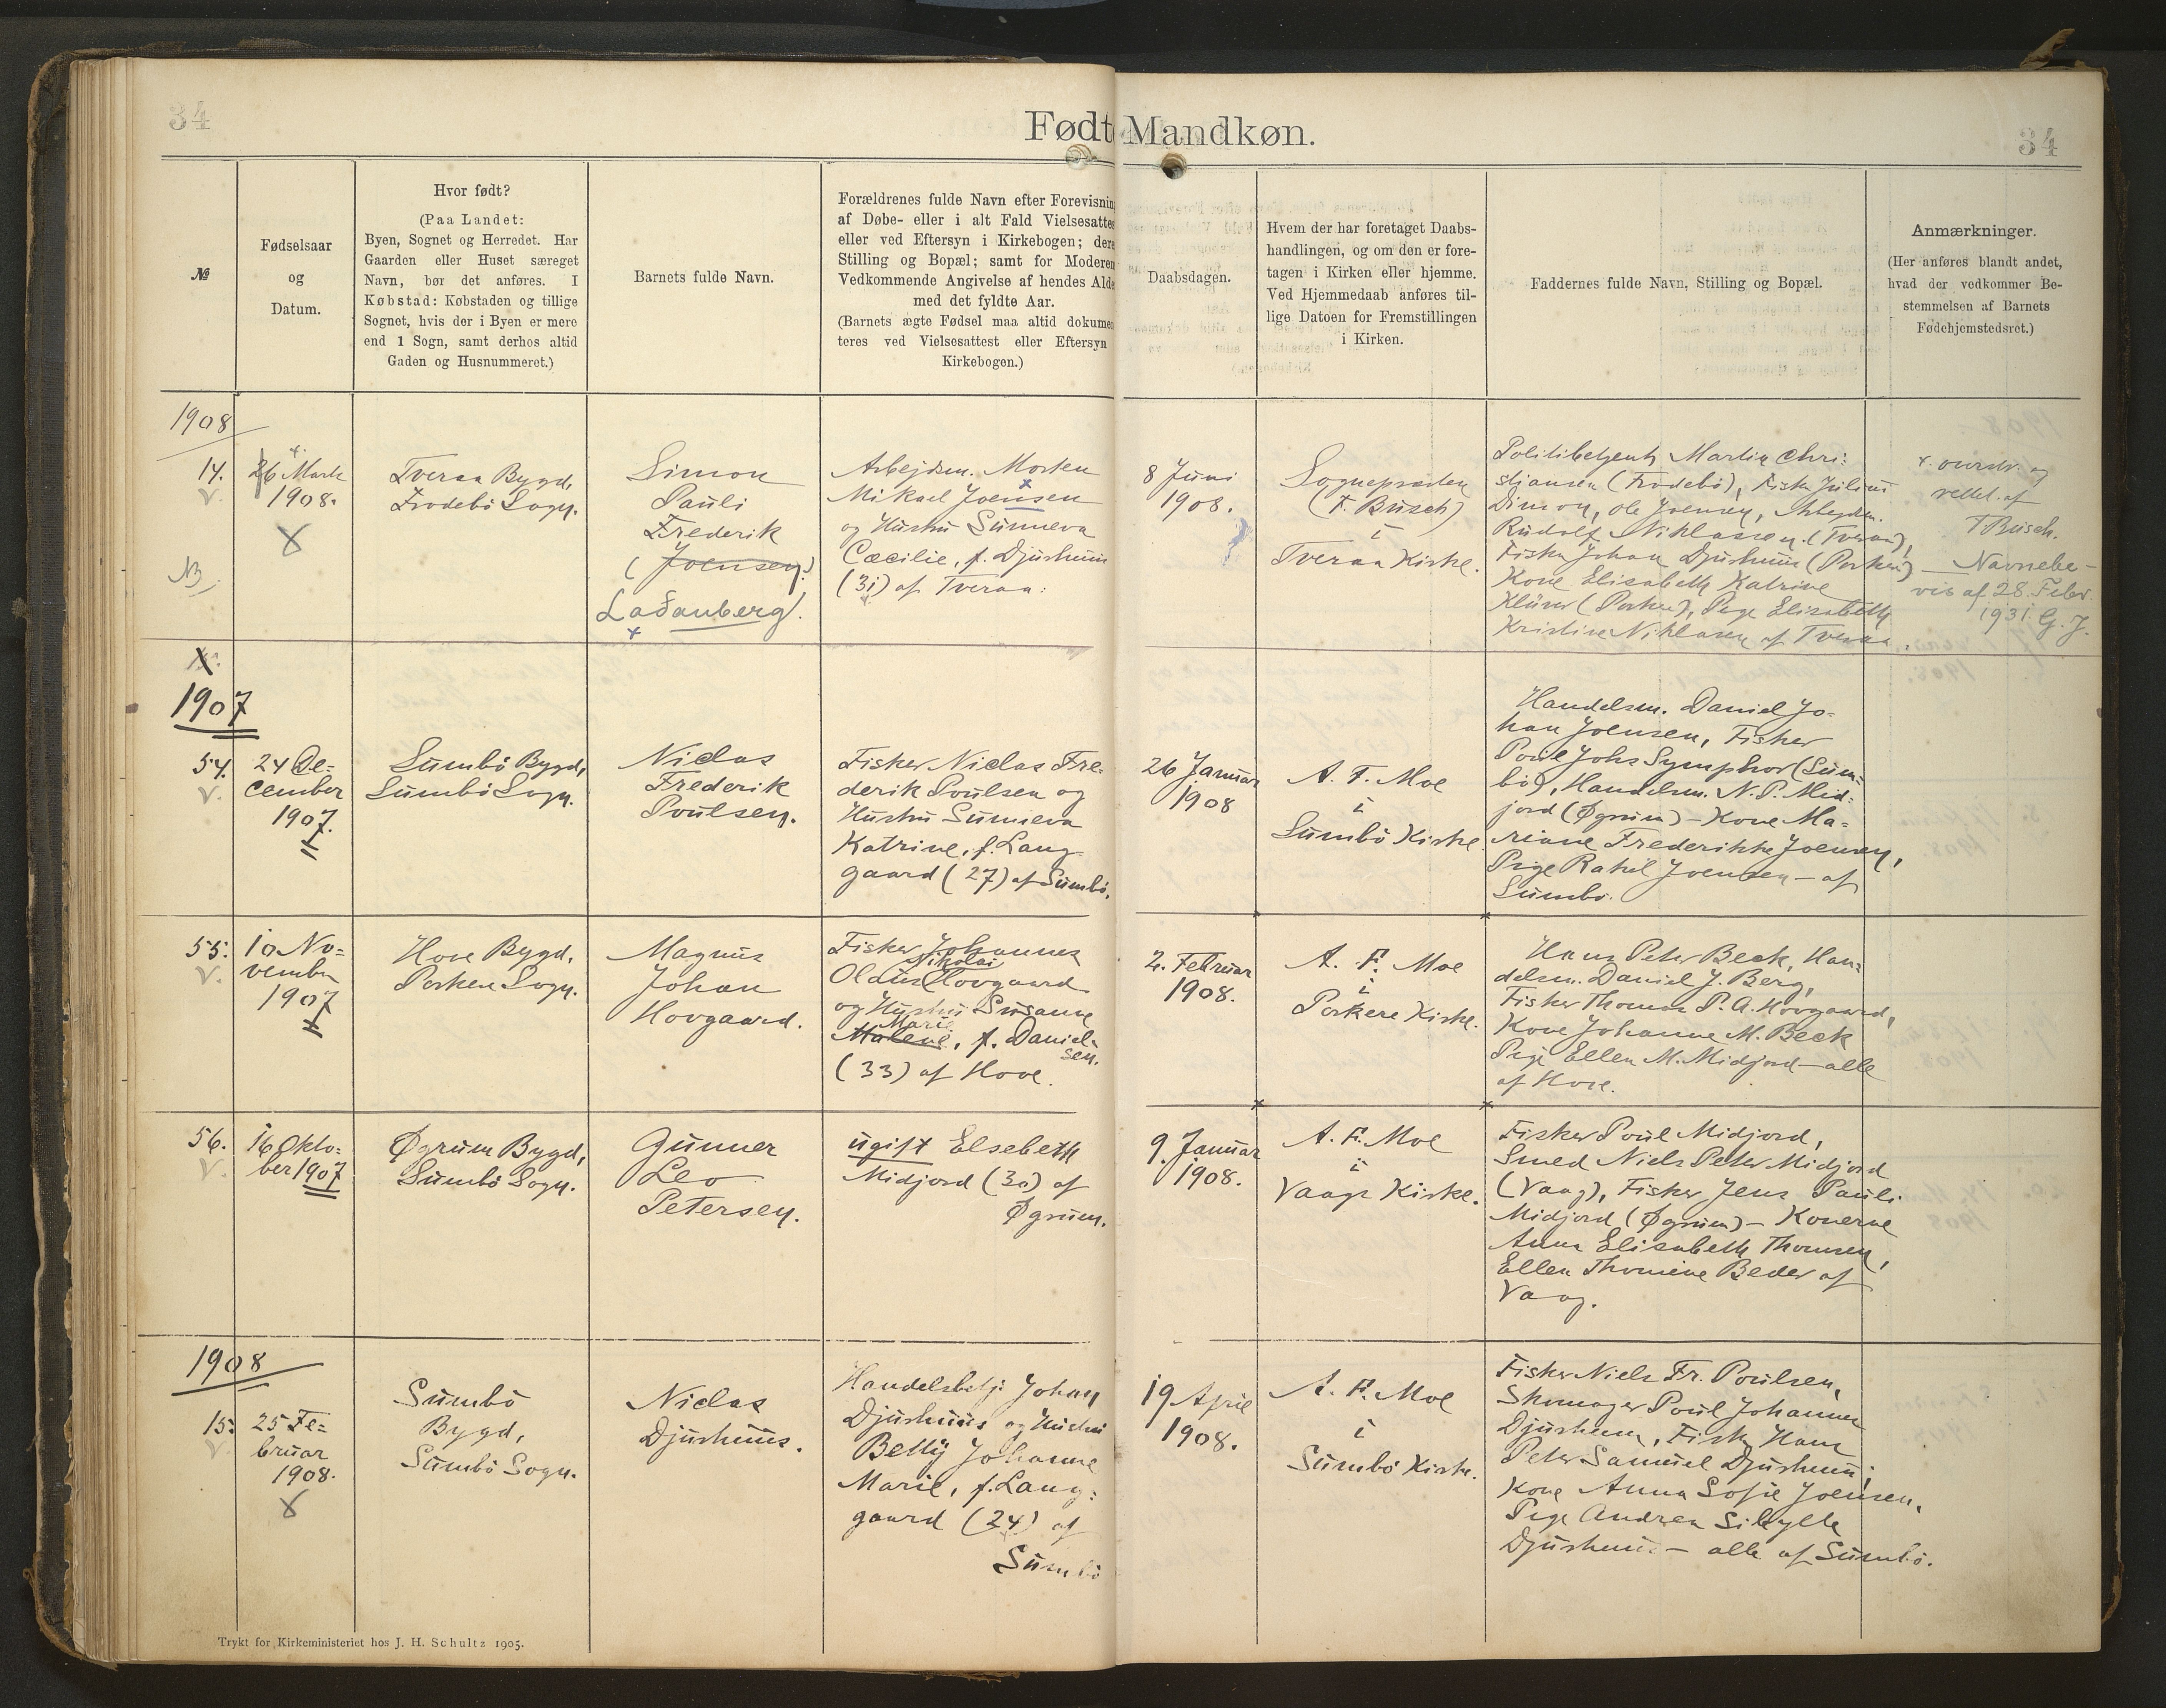 34
Født Mandkøn.
34
№
Fødselsaar
og
Datum.
Hvor født?
(Paa Landet:
Byen, Sognet og Herredet. Har
Gaarden eller Huset særeget
Navn, bør det anføres. I
Købstad: Købstaden og tillige
Sognet, hvis der i Byen er mere
end 1 Sogn, samt derhos altid
Gaden og Husnummeret.)
Barnets fulde Navn.
Forældrenes fulde Navn efter Forevisning
af Døbe- eller i alt Fald Vielsesattes
eller ved Eftersyn i Kirkebogen; dere
Stilling og Bopæl; samt for Moderen
Vedkommende Angivelse af hendes Alde
med det fyldte Aar.
(Barnets ægte Fødsel maa altid dokumen
teres ved Vielsesattest eller Eftersyn
Kirkebogen.)
Daabsdagen.
Hvem der har foretaget Daabs-
handlingen, og om den er fore-
tagen i Kirken eller hjemme.
Ved Hjemmedaab anføres til-
lige Datoen for Fremstillingen
i Kirken.
Faddernes fulde Navn, Stilling og Bopæl.
Anmærkninger.
(Her anføres blandt andet,
hvad der vedkommer Be-
stemmelsen af Barnets
Fødehjemstedsret.)
1908
14.
26 Marts
1908.
NB.
Tveraa Bygd,
Frodebö Sogn.
Simon
Pauli
Frederik
(Joensen)
Laðanberg.
Arbejdsm. Morten
Mikael Joensen
og Hustru Sunneva
Cæcilie, f. Djurhuus
(31) af Tveraa.
8 Juni
1908.
Sognepræsten
(F. Busch)
i
Tveraa Kirke.
Politibetjent Martin Chri-
stiansen (Frodebö), Fisker Julius
Dimon, Ole Joensen, Arbejdsm.
Rudolf Niklassen (Tveraa),
Fisker Johan Djurhuus (Porkeri)
Kone Elisabeth Katrine
Klüwer (Porkeri), Pige Elisabeth
Kristine Niklasen af Tveraa.
x. overstr. og
rettet af
F Busch.
Navnebe-
vis af 28. Febr.
1931 G. J.
1907
54.
24 De-
cember
1907.
Sumbö Bygd,
Sumbö Sogn.
Niclas
Frederik
Poulsen.
Fisker Niclas Fre-
derik Poulsen og
Hustru Sunneva
Katrine, f. Lang-
gaard (27) af Sumbö.
26 Januar
1908
A. F. Moe
i
Sumbö Kirke
Handelsm. Daniel Jo-
han Joensen, Fisker
Poul Johs Symphor (Sum-
bö), Handelsm. N. P. Mid-
jord (Øgrum) - Kone Ma-
riane Frederikke Joensen,
Pige Rakel Joensen - af
Sumbö.
55.
10 No-
vember
1907
Hove Bygd,
Porkeri Sogn.
Magnus
Johan
Hovgaard.
Fisker Johannes
Nikolai
Olaus Hovgaard
og Hustru Susanne
Marie
Malene, f. Daniel-
sen.
(33) af Hove.
2. Februar
1908.
A. F. Moe
i
Porkere Kirke.
Hans Peter Beck, Han-
delsm. Daniel J. Berg,
Fisker Thomas P. A. Hovgaard,
Kone Johanne M. Beck
Pige Ellen M. Midjord - alle
af Hove.
56.
16 Okto-
ber 1907
Øgrum Bygd,
Sumbö Sogn.
Gunner
Leo
Petersen.
ugift Elsebeth
Midjord (30) af
Øgrum.
9. Januar
1908.
A. F. Moe
i
Vaags Kirke.
Fisker Poul Midjord,
Smed Niels Peter Midjord
(Vaag), Fisker Jens Pauli
Midjord (Øgrum) - Konerne
Anna Elisabeth Thomsen,
Ellen Thomine Beder af
Vaag.
1908
15.
25 Fe-
bruar
1908.
Sumbö
Bygd,
Sumbö Sogn.
Niclas
Djurhuus.
Handelsbetj. Johan
Djurhuus og Hustru
Betty Johanne
Marie, f. Lang-
gaard (24) af
Sumbö
19 April
1908.
A. F. Moe
i
Sumbö Kirke.
Fisker Niels Fr. Poulsen,
Skomager Poul Johannes
Djurhuus, Fisker Hans
Peter Samuel Djurhuus,
Kone Anna Sofie Joensen,
Pige Andrea Sibylle
Djurhuus - alle af Sumbö.
Trykt for Kirkeministeriet hos J. H. Schultz 1905.